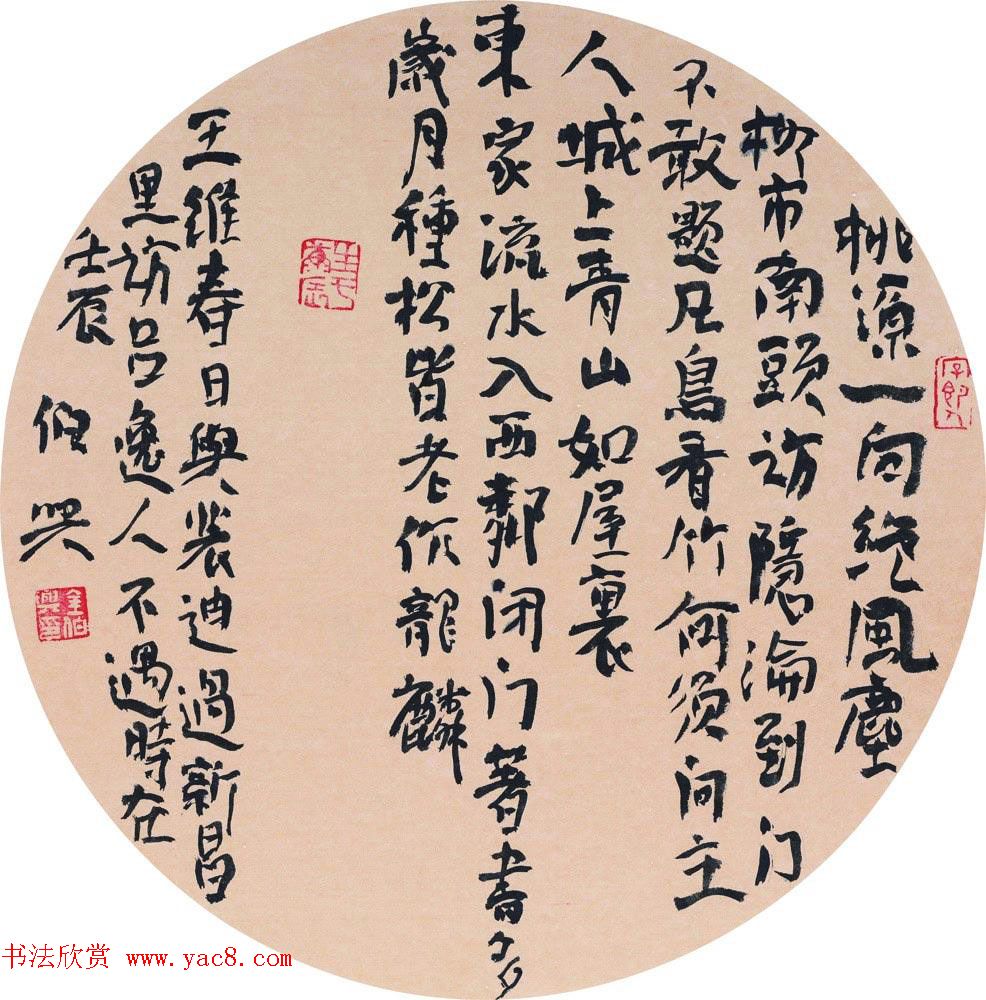 桃源一向絶風塵
柳市南頭訪隱淪到门
不敢題凡鳥看竹何須问主
人城上青山如屋裏
東家流水入西鄰闭门著書多
歲月種松皆老作龍麟
王維春日與裴迪過新昌
里訪吕逸人不遇時在
壬辰 伯兴
金伯興印
书法欣赏 www.yac8.com